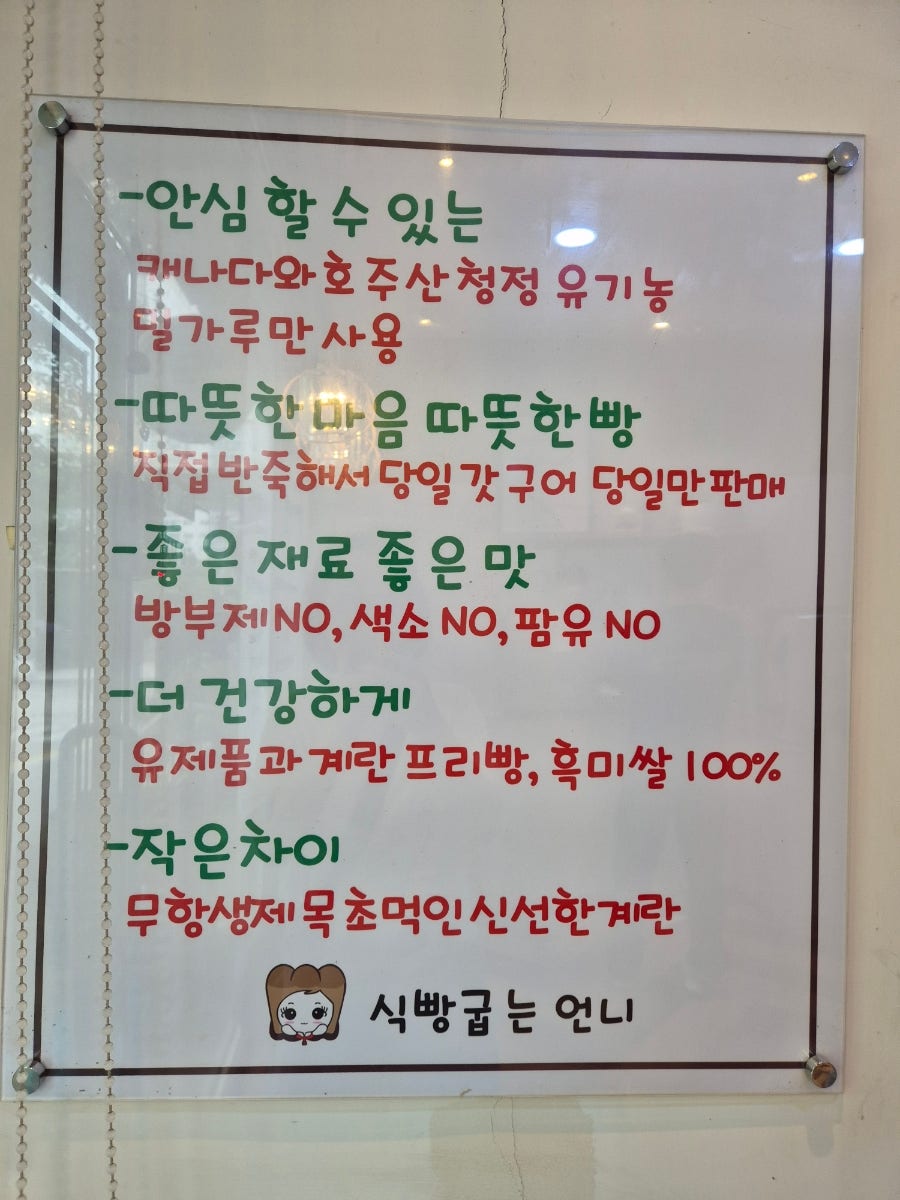 -안심 할 수 있는
캐나다와 호주산 청정 유기농
밀가루만 사용
-따뜻한 마음 따뜻한 빵
직접 반죽해서 당일 갓 구어 당일만 판매
-좋은 재료 좋은 맛
방부제 NO, 색소 NO, 팜유 NO
-더 건강하게
유제품과 계란 프리빵, 흑미쌀 100%
-작은 차이
무항생제 목초먹인 신선한 계란
식빵굽는 언니